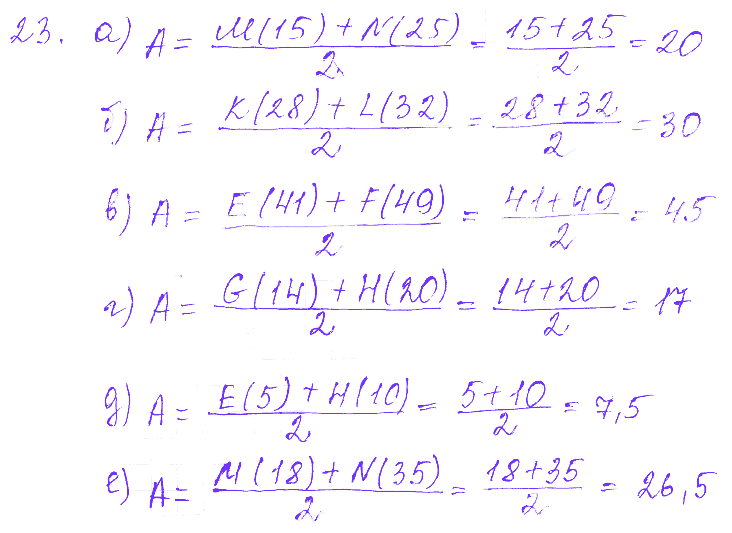 23. а) A = (M(15) + N(25))/2 = (15+25)/2 = 20
б) A = (K(28) + L(32))/2 = (28+32)/2 = 30
в) A = (E(41) + F(49))/2 = (41+49)/2 = 45
г) A = (G(14) + H(20))/2 = (14+20)/2 = 17
д) A = (E(5) + H(10))/2 = (5+10)/2 = 7,5
е) A = (M(18) + N(35))/2 = (18+35)/2 = 26,5